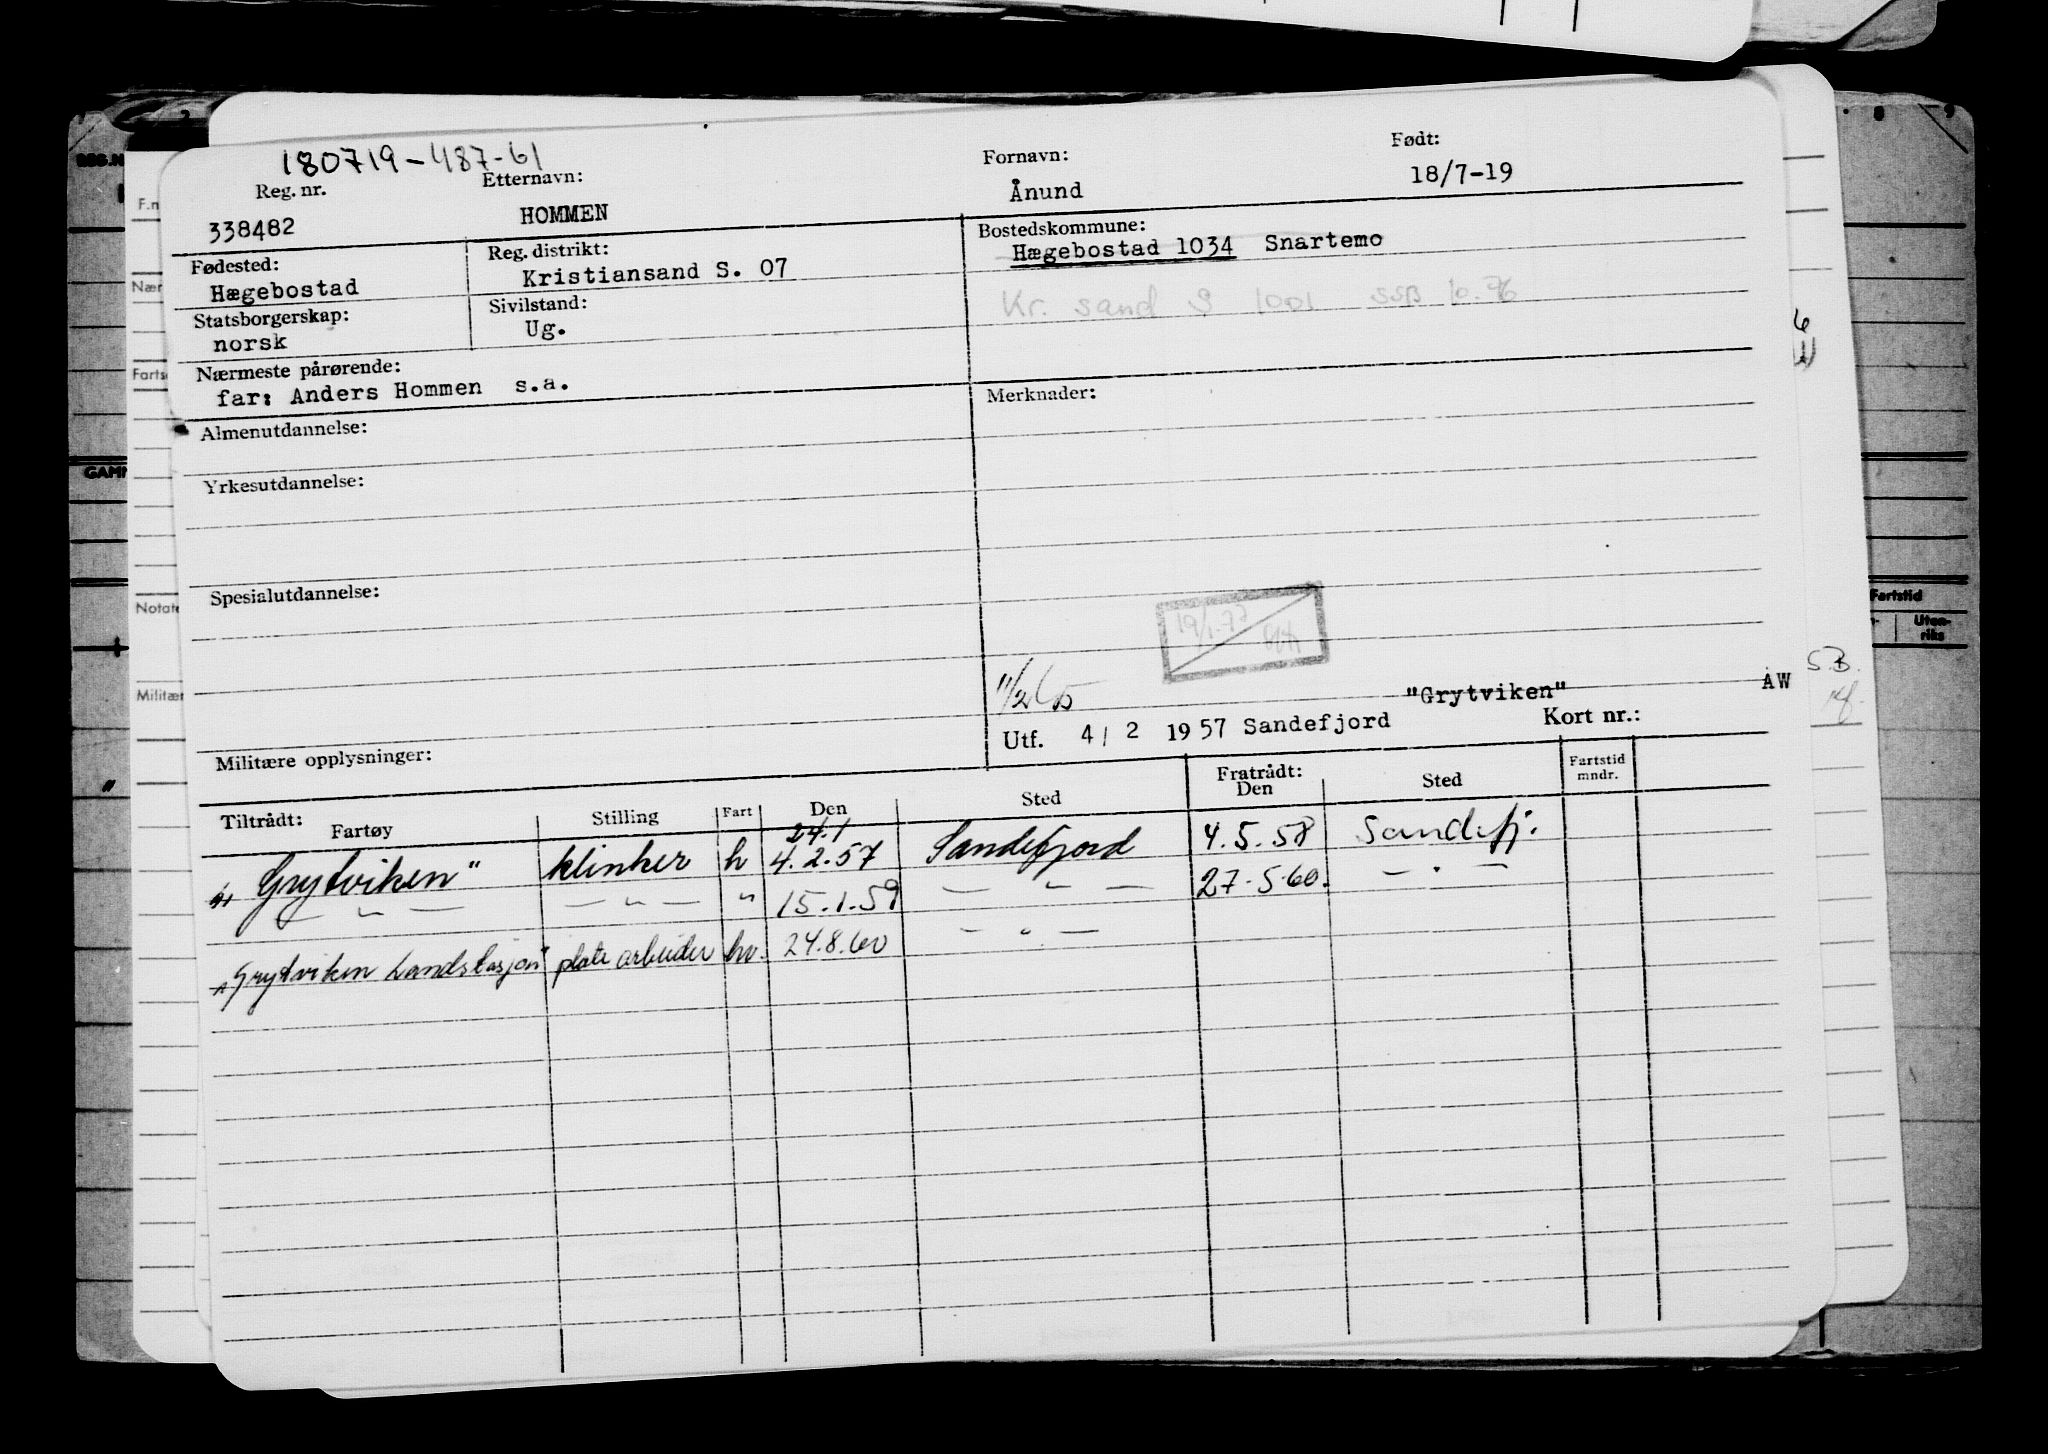 180719-487-61
Reg. nr. Etternavn: Fornavn: Født:
338482 HOMMEN Ånund 18/7-19
Fødested: Reg. distrikt: Bostedskommune:
Hægebostad Kristiansand S. 07 Hægebostad 1034 Snartemo
Statsborgerskap: Sivilstand: Kr. sand S 1001 SSB 10.76
norsk Ug.
Nærmeste pårørende:
far: Anders Hommen s.a. Merknader:
Almenutdannelse:
Yrkesutdannelse:
Spesialutdannelse:
19/1.77
11/2 65
"Grytviken" AW
Utf. 4/2 1957 Sandefjord Kort nr.:
Militære opplysninger:
Tiltrådt: Fartøy Stilling Fart Den Sted Fratrådt: Den Sted Fartstid mndr.
24/1
"Grytviken" klinker h 4.2.57 Sandefjord 4.5.58 Sandefj.
— " — — " — " 15.1.59 — " — 27.5.60. — " —
"Grytviken Landstasjon" plate arbeider hv. 24.8.60 — " —
REG.N
F.n
Nær
Farts
GAM
Notate
Militær
8 9
6
Fartstid
Uten-
riks
S.B.